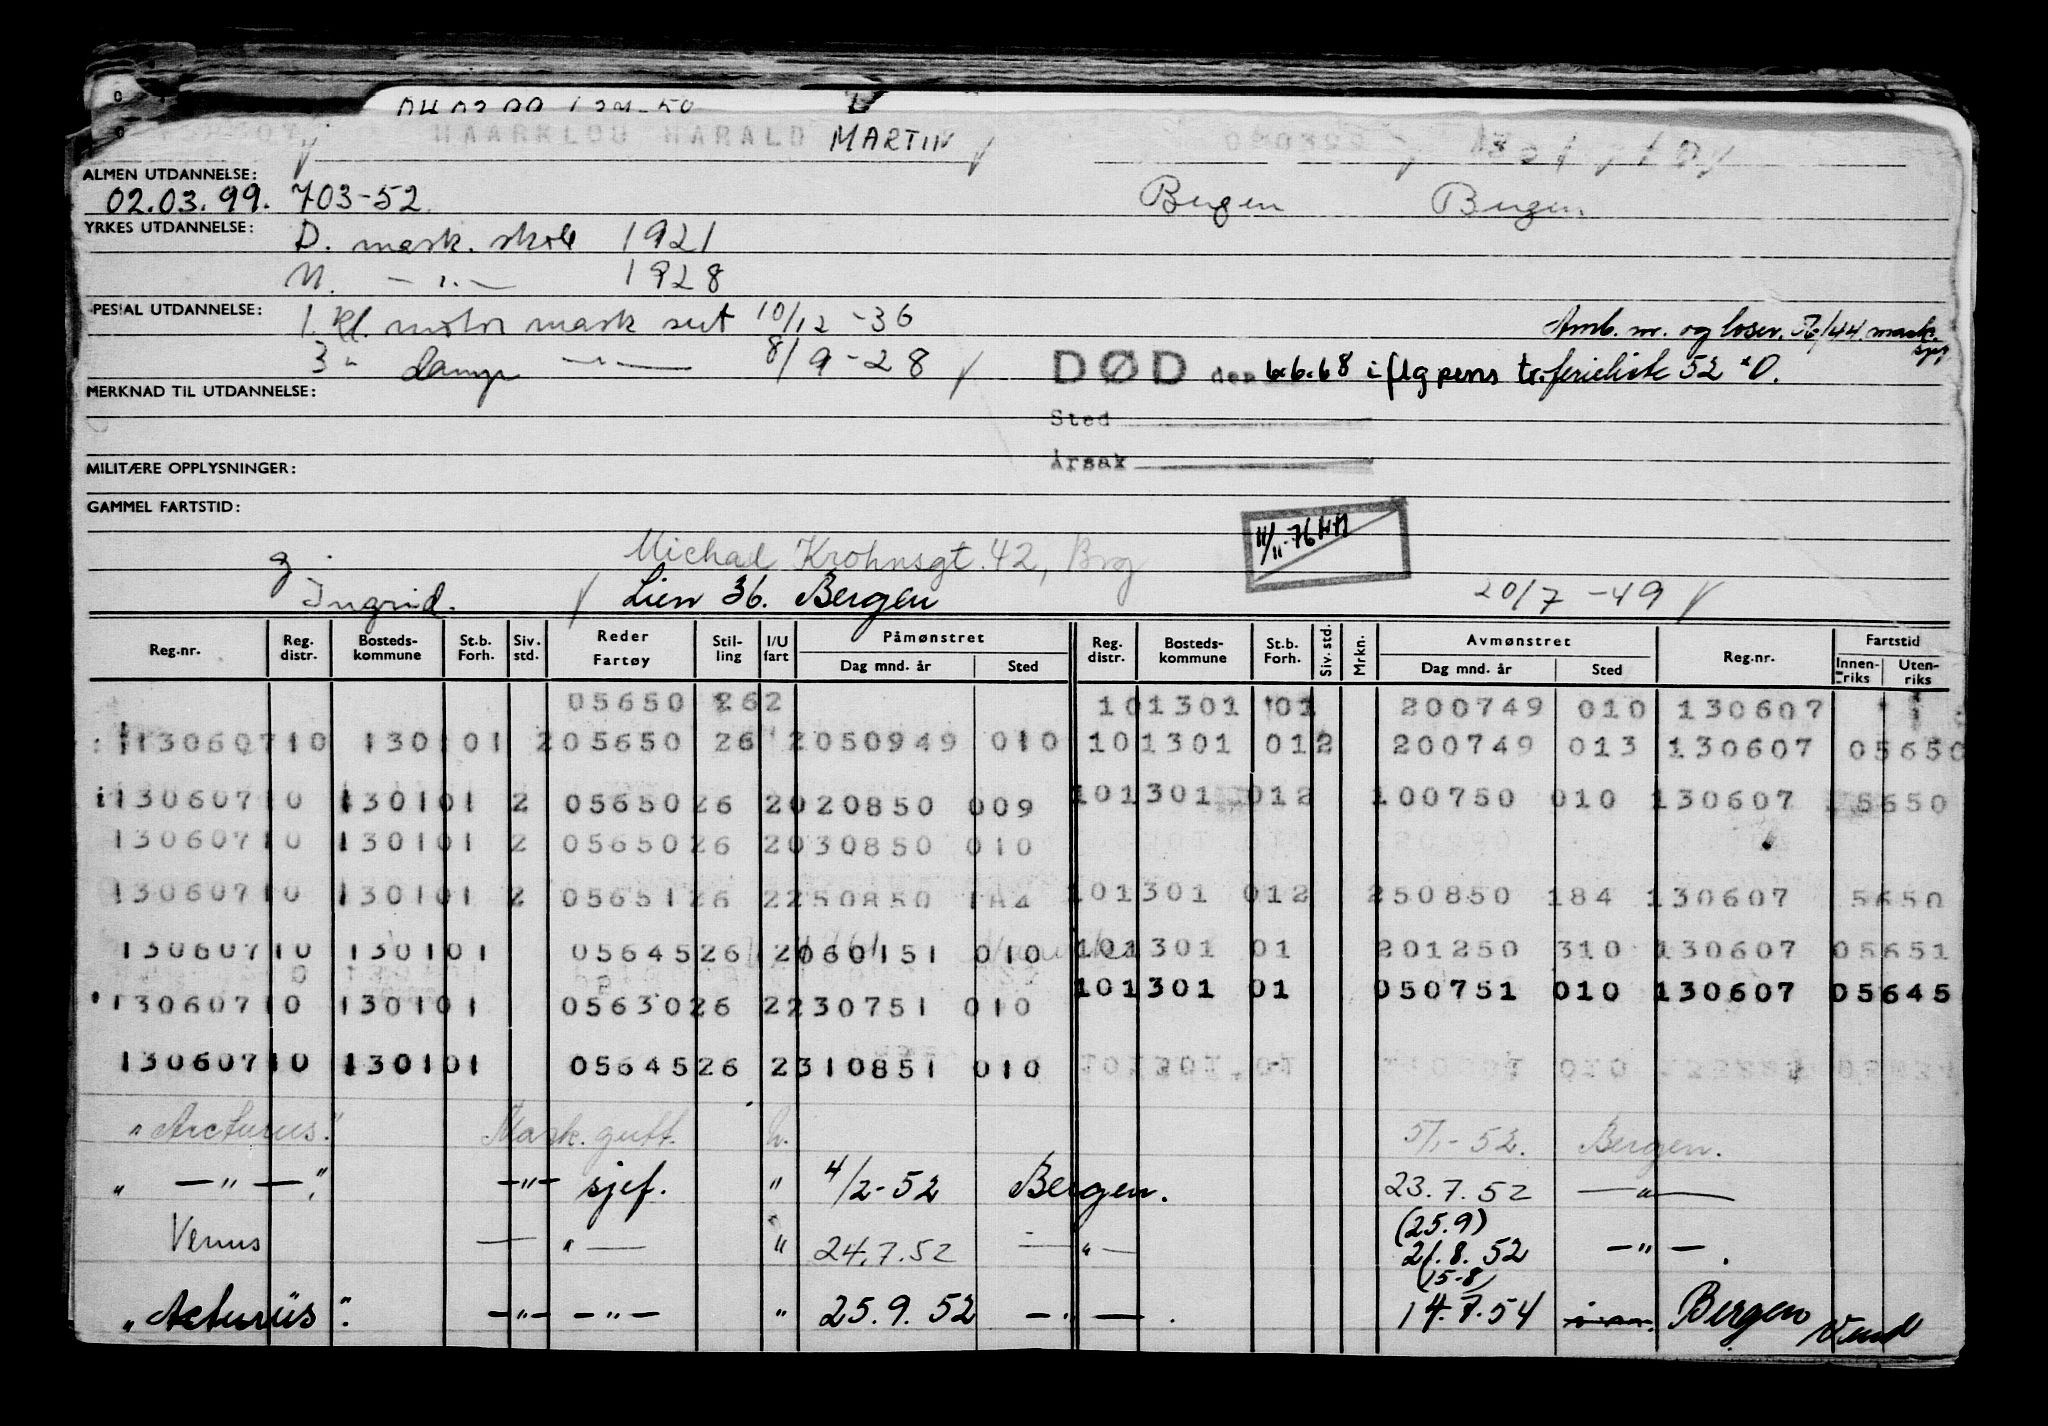 HAARKLOU HARALD MARTIN
ALMEN UTDANNELSE:
02.03.99. 703-52 Bergen Bergen
YRKES UTDANNELSE:
D. mask. skole 1921
M. — " — 1928
SPESIAL UTDANNELSE: 1. kl. motor mask sert 10/12 -36
Amb. nr. og losev. mask.
3 " Damp — 8/9-28
DØD den 6.6.68 iflg pens tr. ferieliste 52 D.
MERKNAD TIL UTDANNELSE:
Sted
Årsak
MILITÆRE OPPLYSNINGER:
GAMMEL FARTSTID:
11/11-76 HH
g. Michael Krohnsgt. 42, Brg
Ingrid. Lien 36. Bergen 20/7 -49
Reg.nr. Reg. distr. Bosteds-kommune St.b. Forh. Siv. std. Reder Fartøy Stil-ling I/U fart Påmønstret Dag mnd. år Sted Reg. distr. Bosteds-kommune St.b. Forh. Siv. std. Mrkn. Avmønstret Dag mnd. år Sted Reg.nr. Fartstid Innen-riks Uten-riks
05650 262 101301 01 200749 010 130607
13060710 130101 205650 26 2050949 010 101301 012 200749 013 130607 05650
13060710 130101 2 0565026 2020850 009 101301 012 100750 010 130607 5650
13060710 130101 2 0565026 2030850 010
13060710 130101 2 0565126 2250850 184 101301 012 250850 184 130607 5650
13060710 130101 0564526 2060151 010 101301 01 201250 310 130607 05651
13060710 130101 0563026 2230751 010 101301 01 050751 010 130607 05645
13060710 130101 0564526 2310851 010 101301 01
"Arcturus." Mask. gutt. 5/1-52. Bergen.
" — " — " — " — sjef. " 4/2-52 Bergen. 23.7.52 — " —
Venus — " — " 24.7.52 — " — (25.9) 21.8.52 — " — .
(15-8)
"Acturus". — " — — " — " 25.9.52 — " — . 14.7.54 Bergen Vend